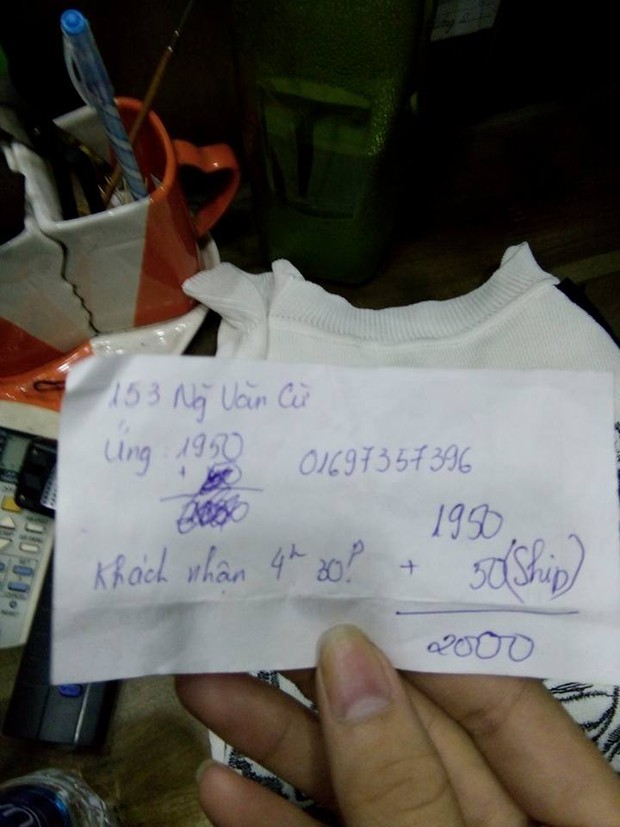 153 Ng Văn Cừ
Ứng : 1950
+
01697357396
Khách nhận 4h 30p
1950
+ 50 (Ship)
2000